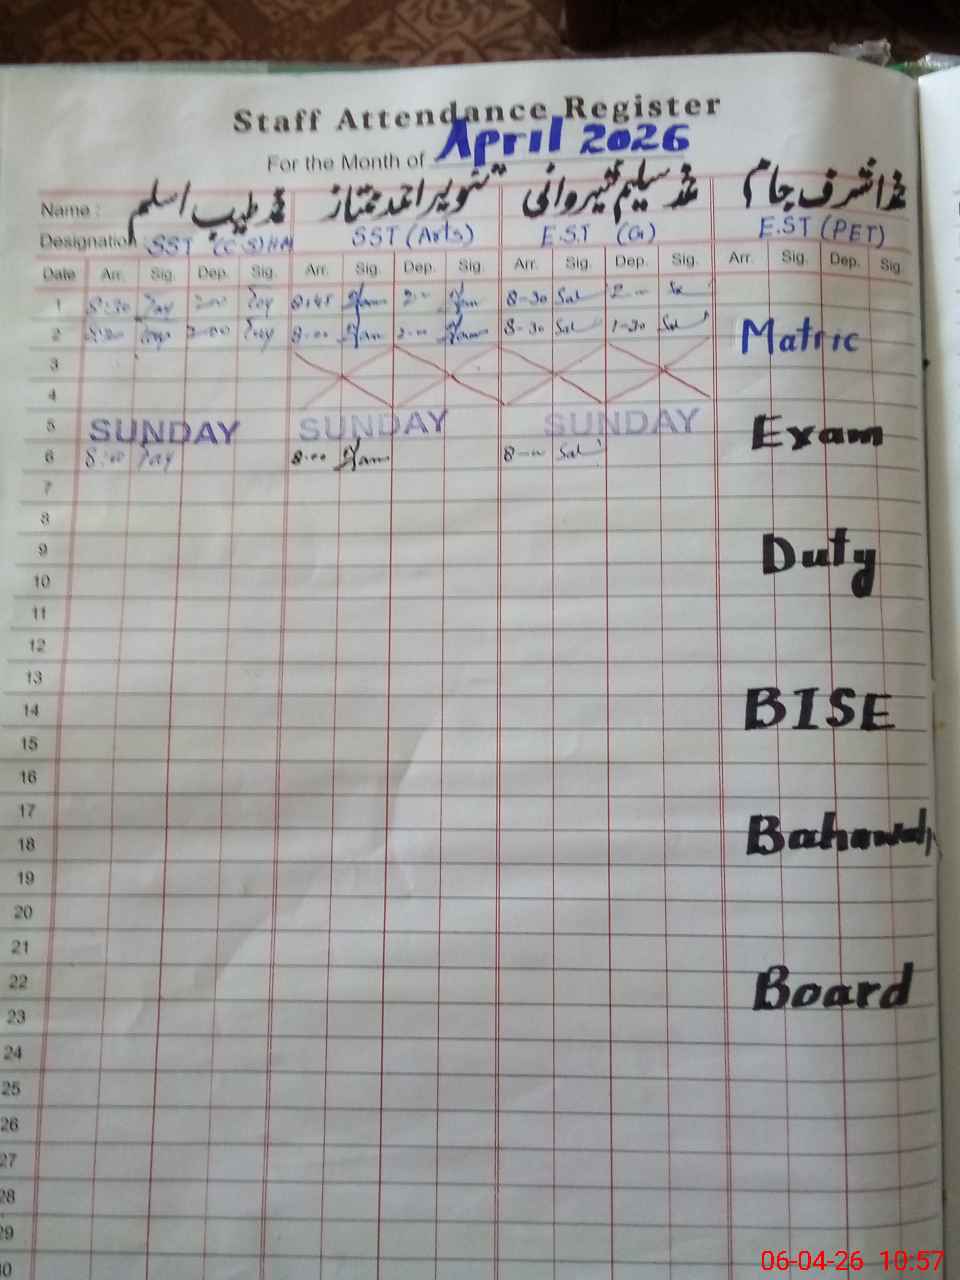 Staff Attendance Register
For the Month of April 2026
Name : محمد طیب اسلم تنویر احمد ممتاز محمد سلیم شیروانی محمد اشرف جام
Designation SST (C.S) HM SST (Arts) E.S.T E.ST (PET)
Date Arr. Sig. Dep. Sig. Arr. Sig. Dep. Sig. Arr. Sig. Dep. Sig. Arr. Sig. Dep. Sig.
1 8:30 2:00 8:45 8-30
2 2:00 8:00 8-30 1-30
Matric
3
4
5 SUNDAY SUNDAY SUNDAY
Exam
6 8:00 8:00
7
8
9
Duty
10
11
12
13
14
BISE
15
16
17
18
19
20
21
22
Board
23
24
25
26
27
28
29
30
06-04-26 10:57